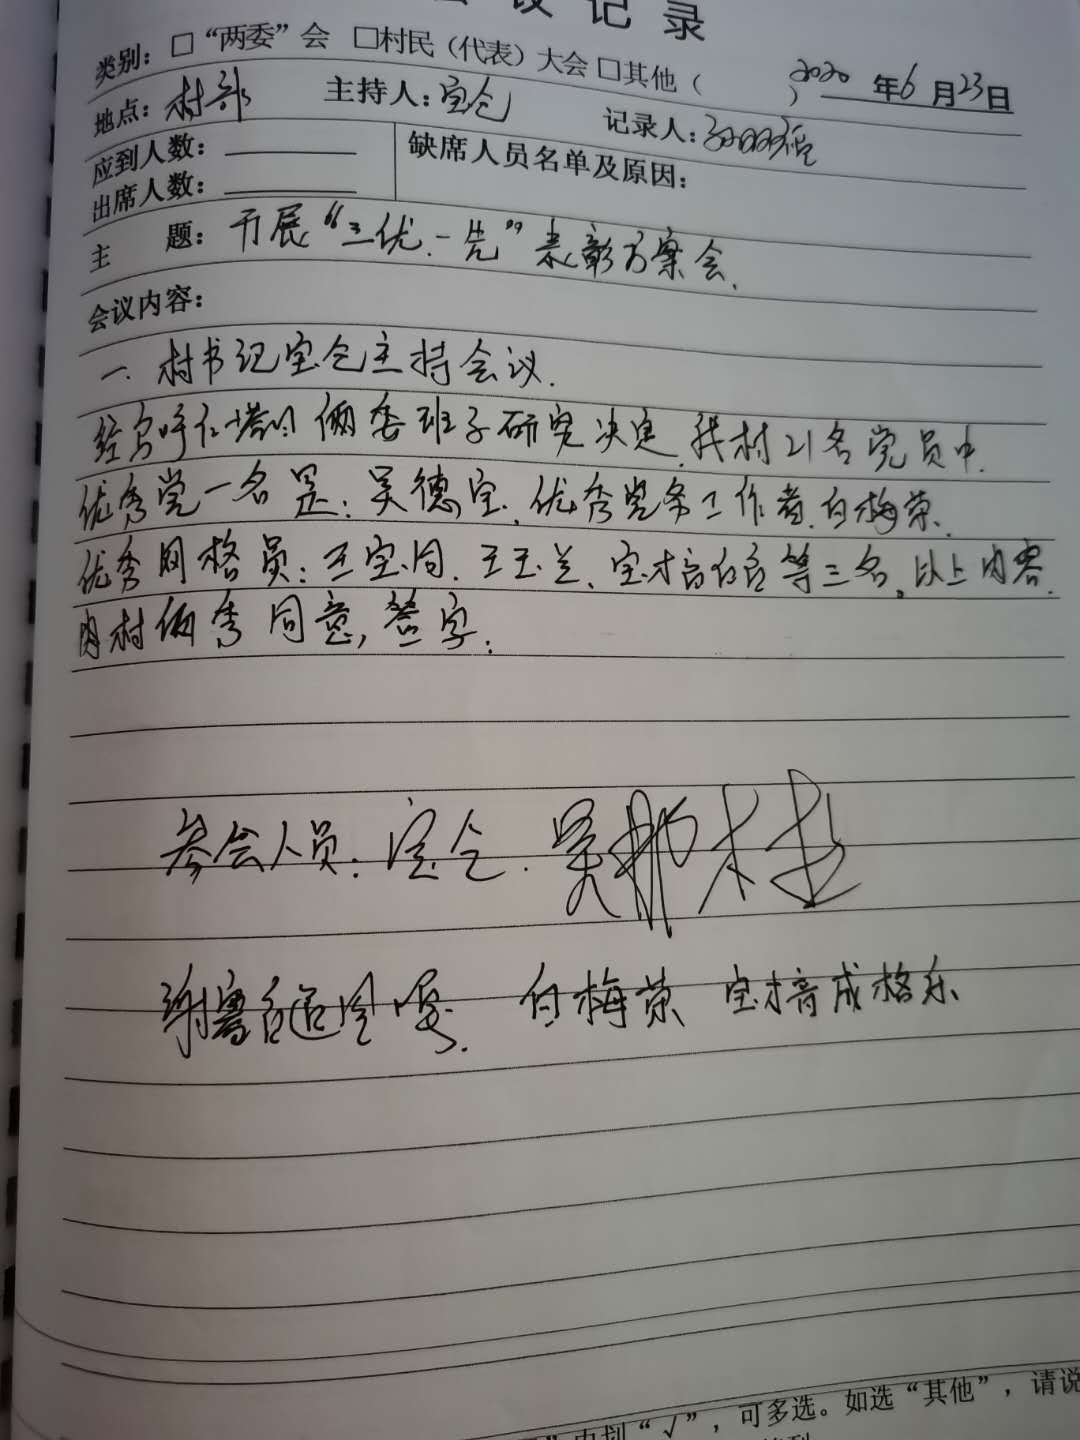 议记录
类别：□“两委”会 □村民（代表）大会 □其他（ ） 2020年6月23日
地点：村部 主持人：宝仓 记录人：
应到人数： 缺席人员名单及原因：
出席人数：
主 题：开展“三优一先”表彰方案会.
会议内容：
一. 村书记宝仓主持会议.
经乌呼仁塔 俩委班子研究决定.我村21名党员中.
优秀党一名是：吴德宝.优秀党务工作者.白梅荣.
优秀网格员：王宝同.王玉兰.宝 等三名。以上内容.
内村俩秀同意，签字：
参会人员：宝仓.吴
谢 白梅荣 宝 成格乐
中划“√”，可多选。如选“其他”，请说